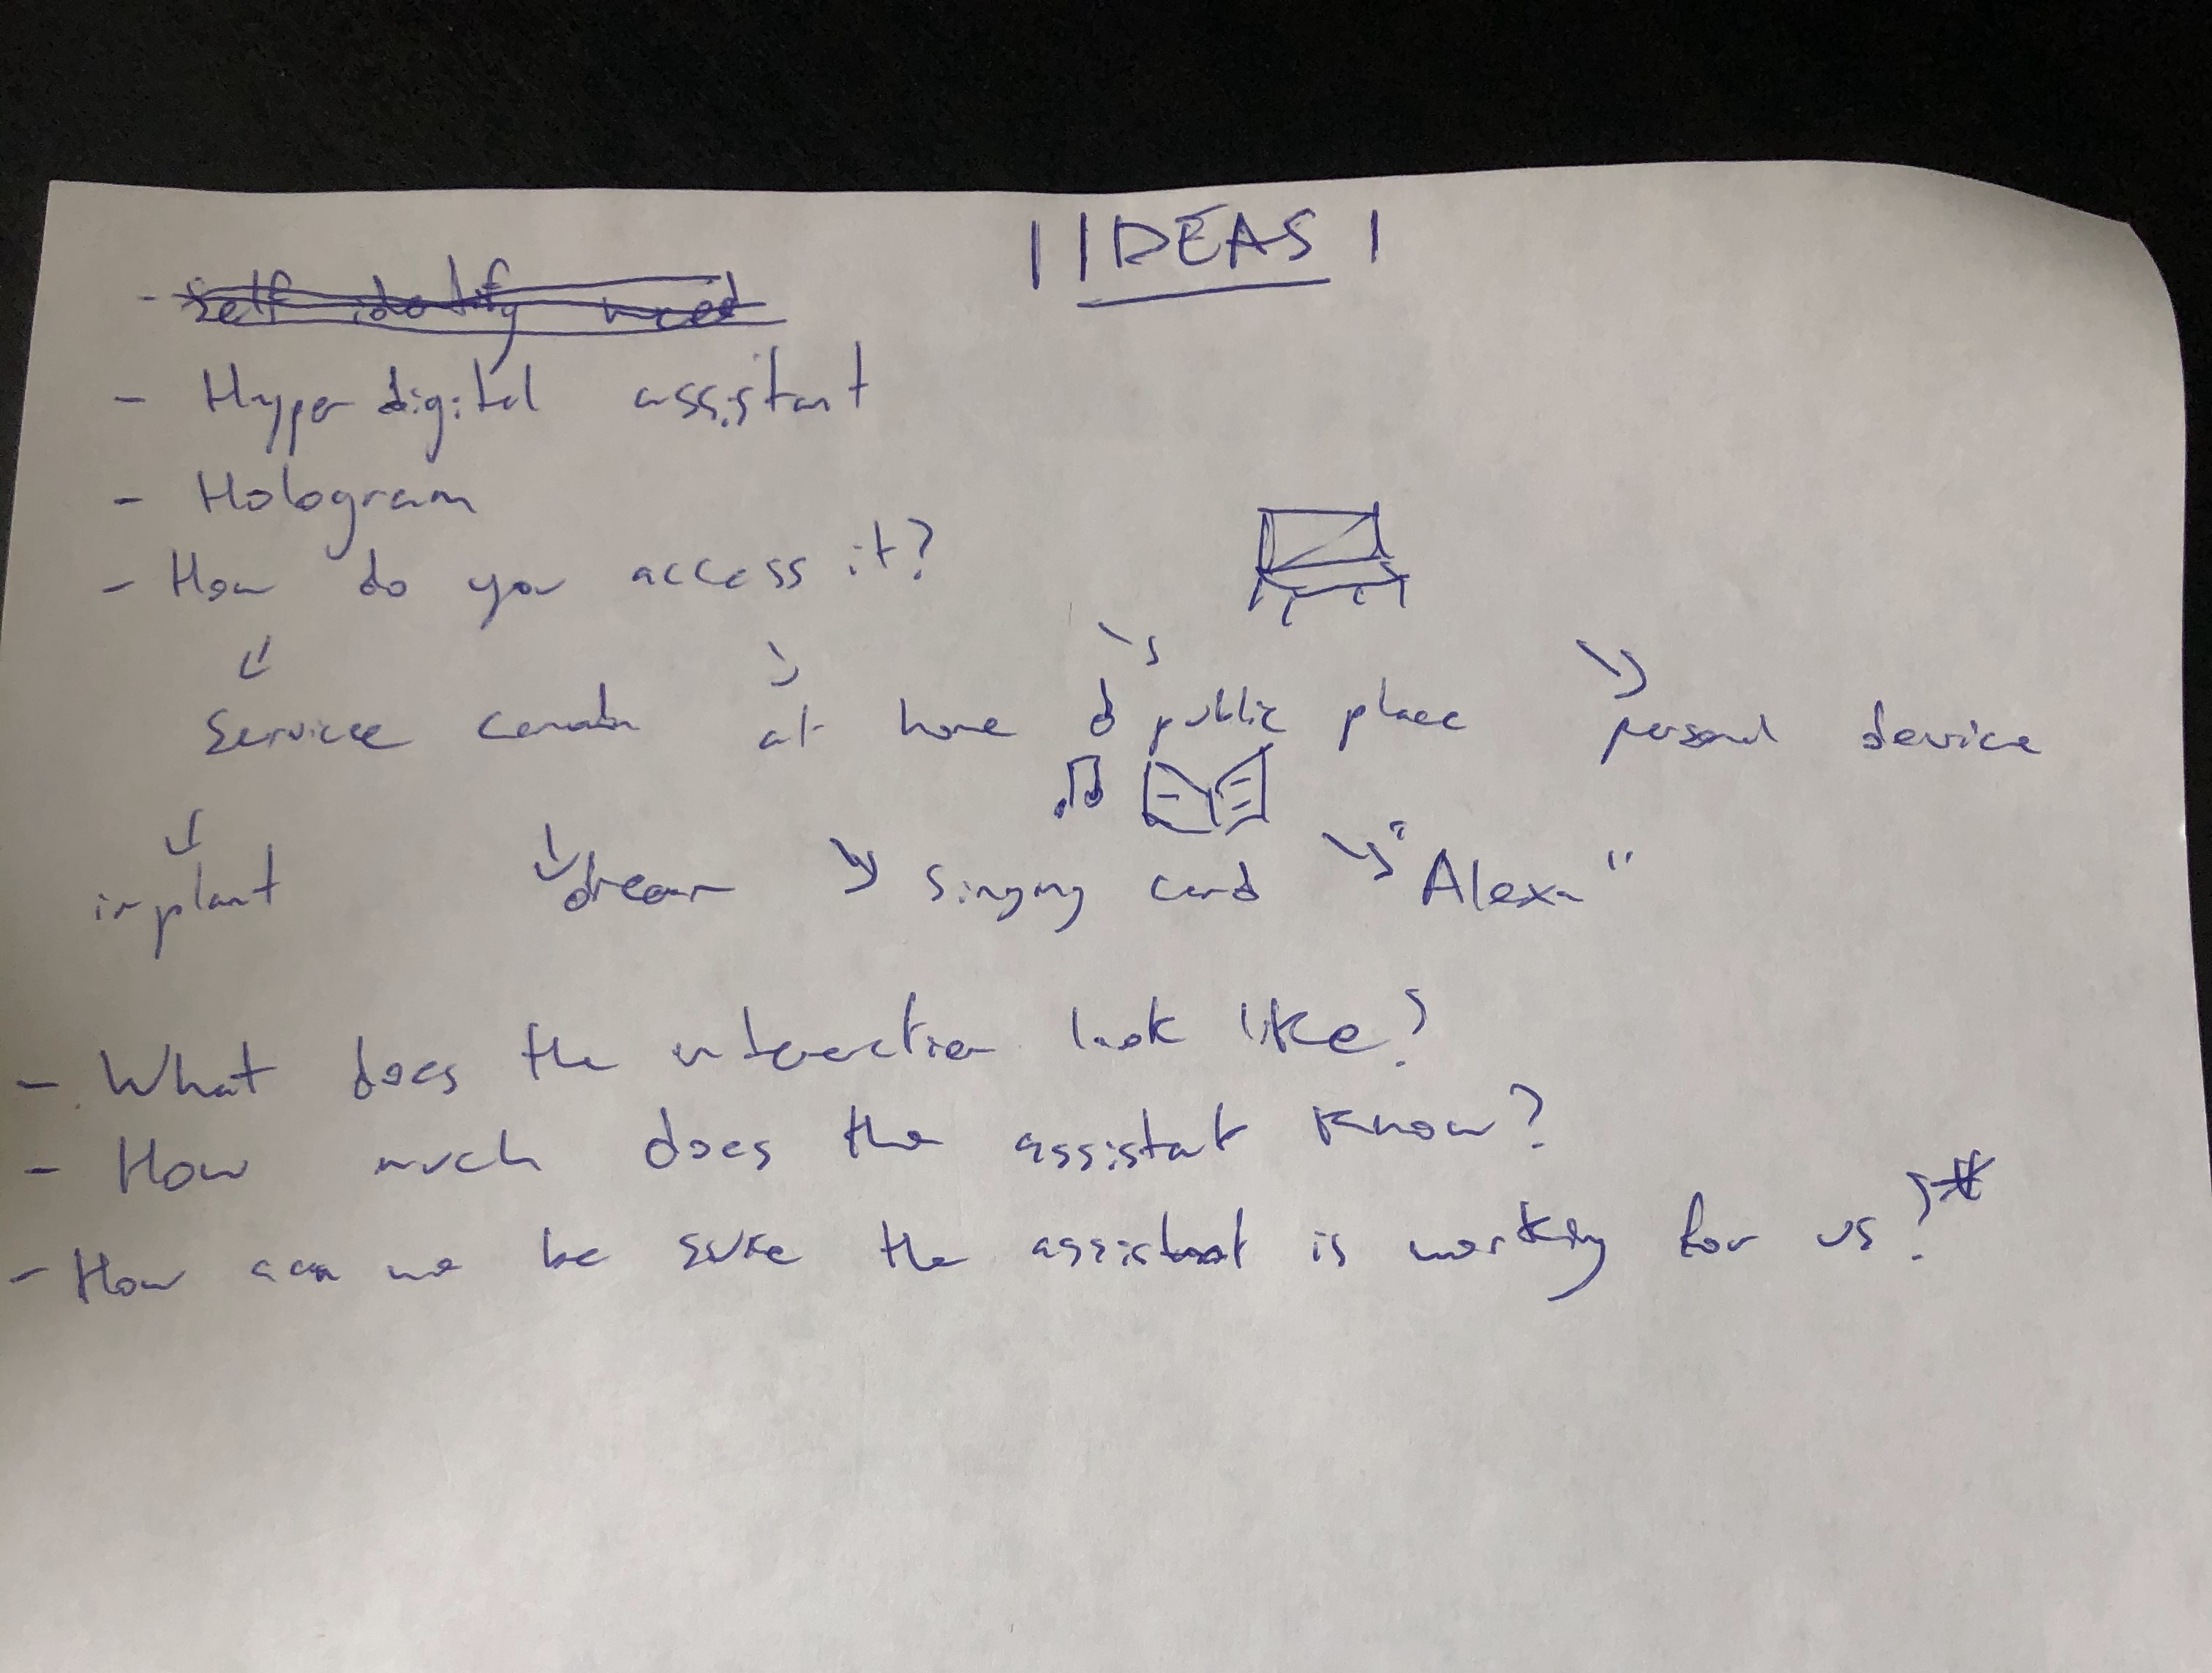 IDEAS
- self identify need
- Hyper digital assistant
- Hologram
- How do you access it?
Service Canada at home public place personal device
implant dream singing card "Alexa"
- What does the interaction look like?
- How much does the assistant know?
- How can we be sure the assistant is working for us?*